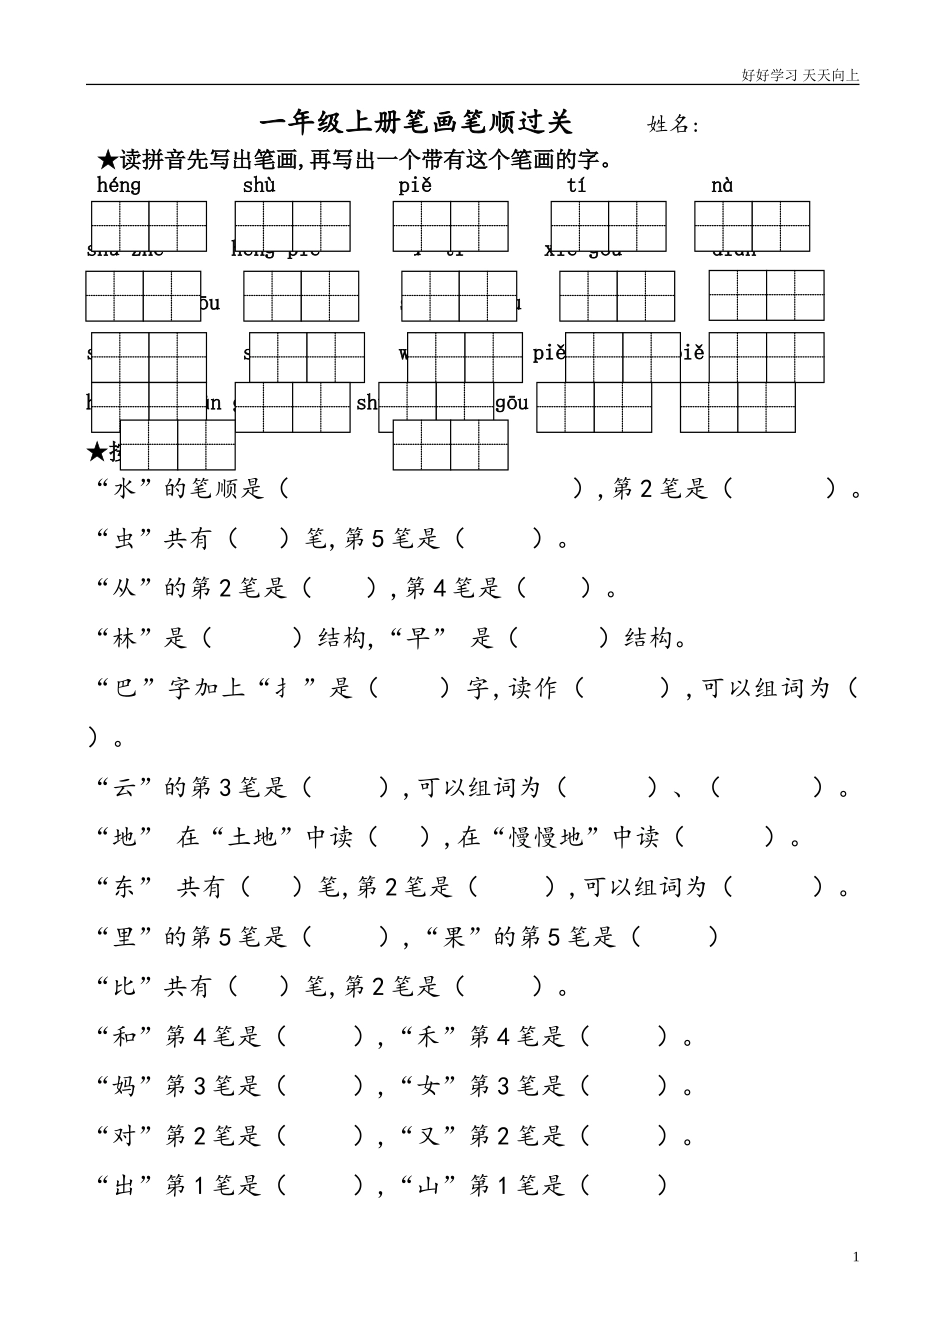 好好学习 天天向上
一年级上册笔画笔顺过关 姓名:
★读拼音先写出笔画,再写出一个带有这个笔画的字。
héng shù piě tí nà
gōu
★
“水”的笔顺是( ),第2笔是( )。
“虫”共有( )笔,第5笔是( )。
“从”的第2笔是( ),第4笔是( )。
“林”是( )结构,“早” 是( )结构。
“巴”字加上“扌”是( )字,读作( ),可以组词为(
)。
“云”的第3笔是( ),可以组词为( )、( )。
“地” 在“土地”中读( ),在“慢慢地”中读( )。
“东” 共有( )笔,第2笔是( ),可以组词为( )。
“里”的第5笔是( ),“果”的第5笔是( )
“比”共有( )笔,第2笔是( )。
“和”第4笔是( ),“禾”第4笔是( )。
“妈”第3笔是( ),“女”第3笔是( )。
“对”第2笔是( ),“又”第2笔是( )。
“出”第1笔是( ),“山”第1笔是( )
1